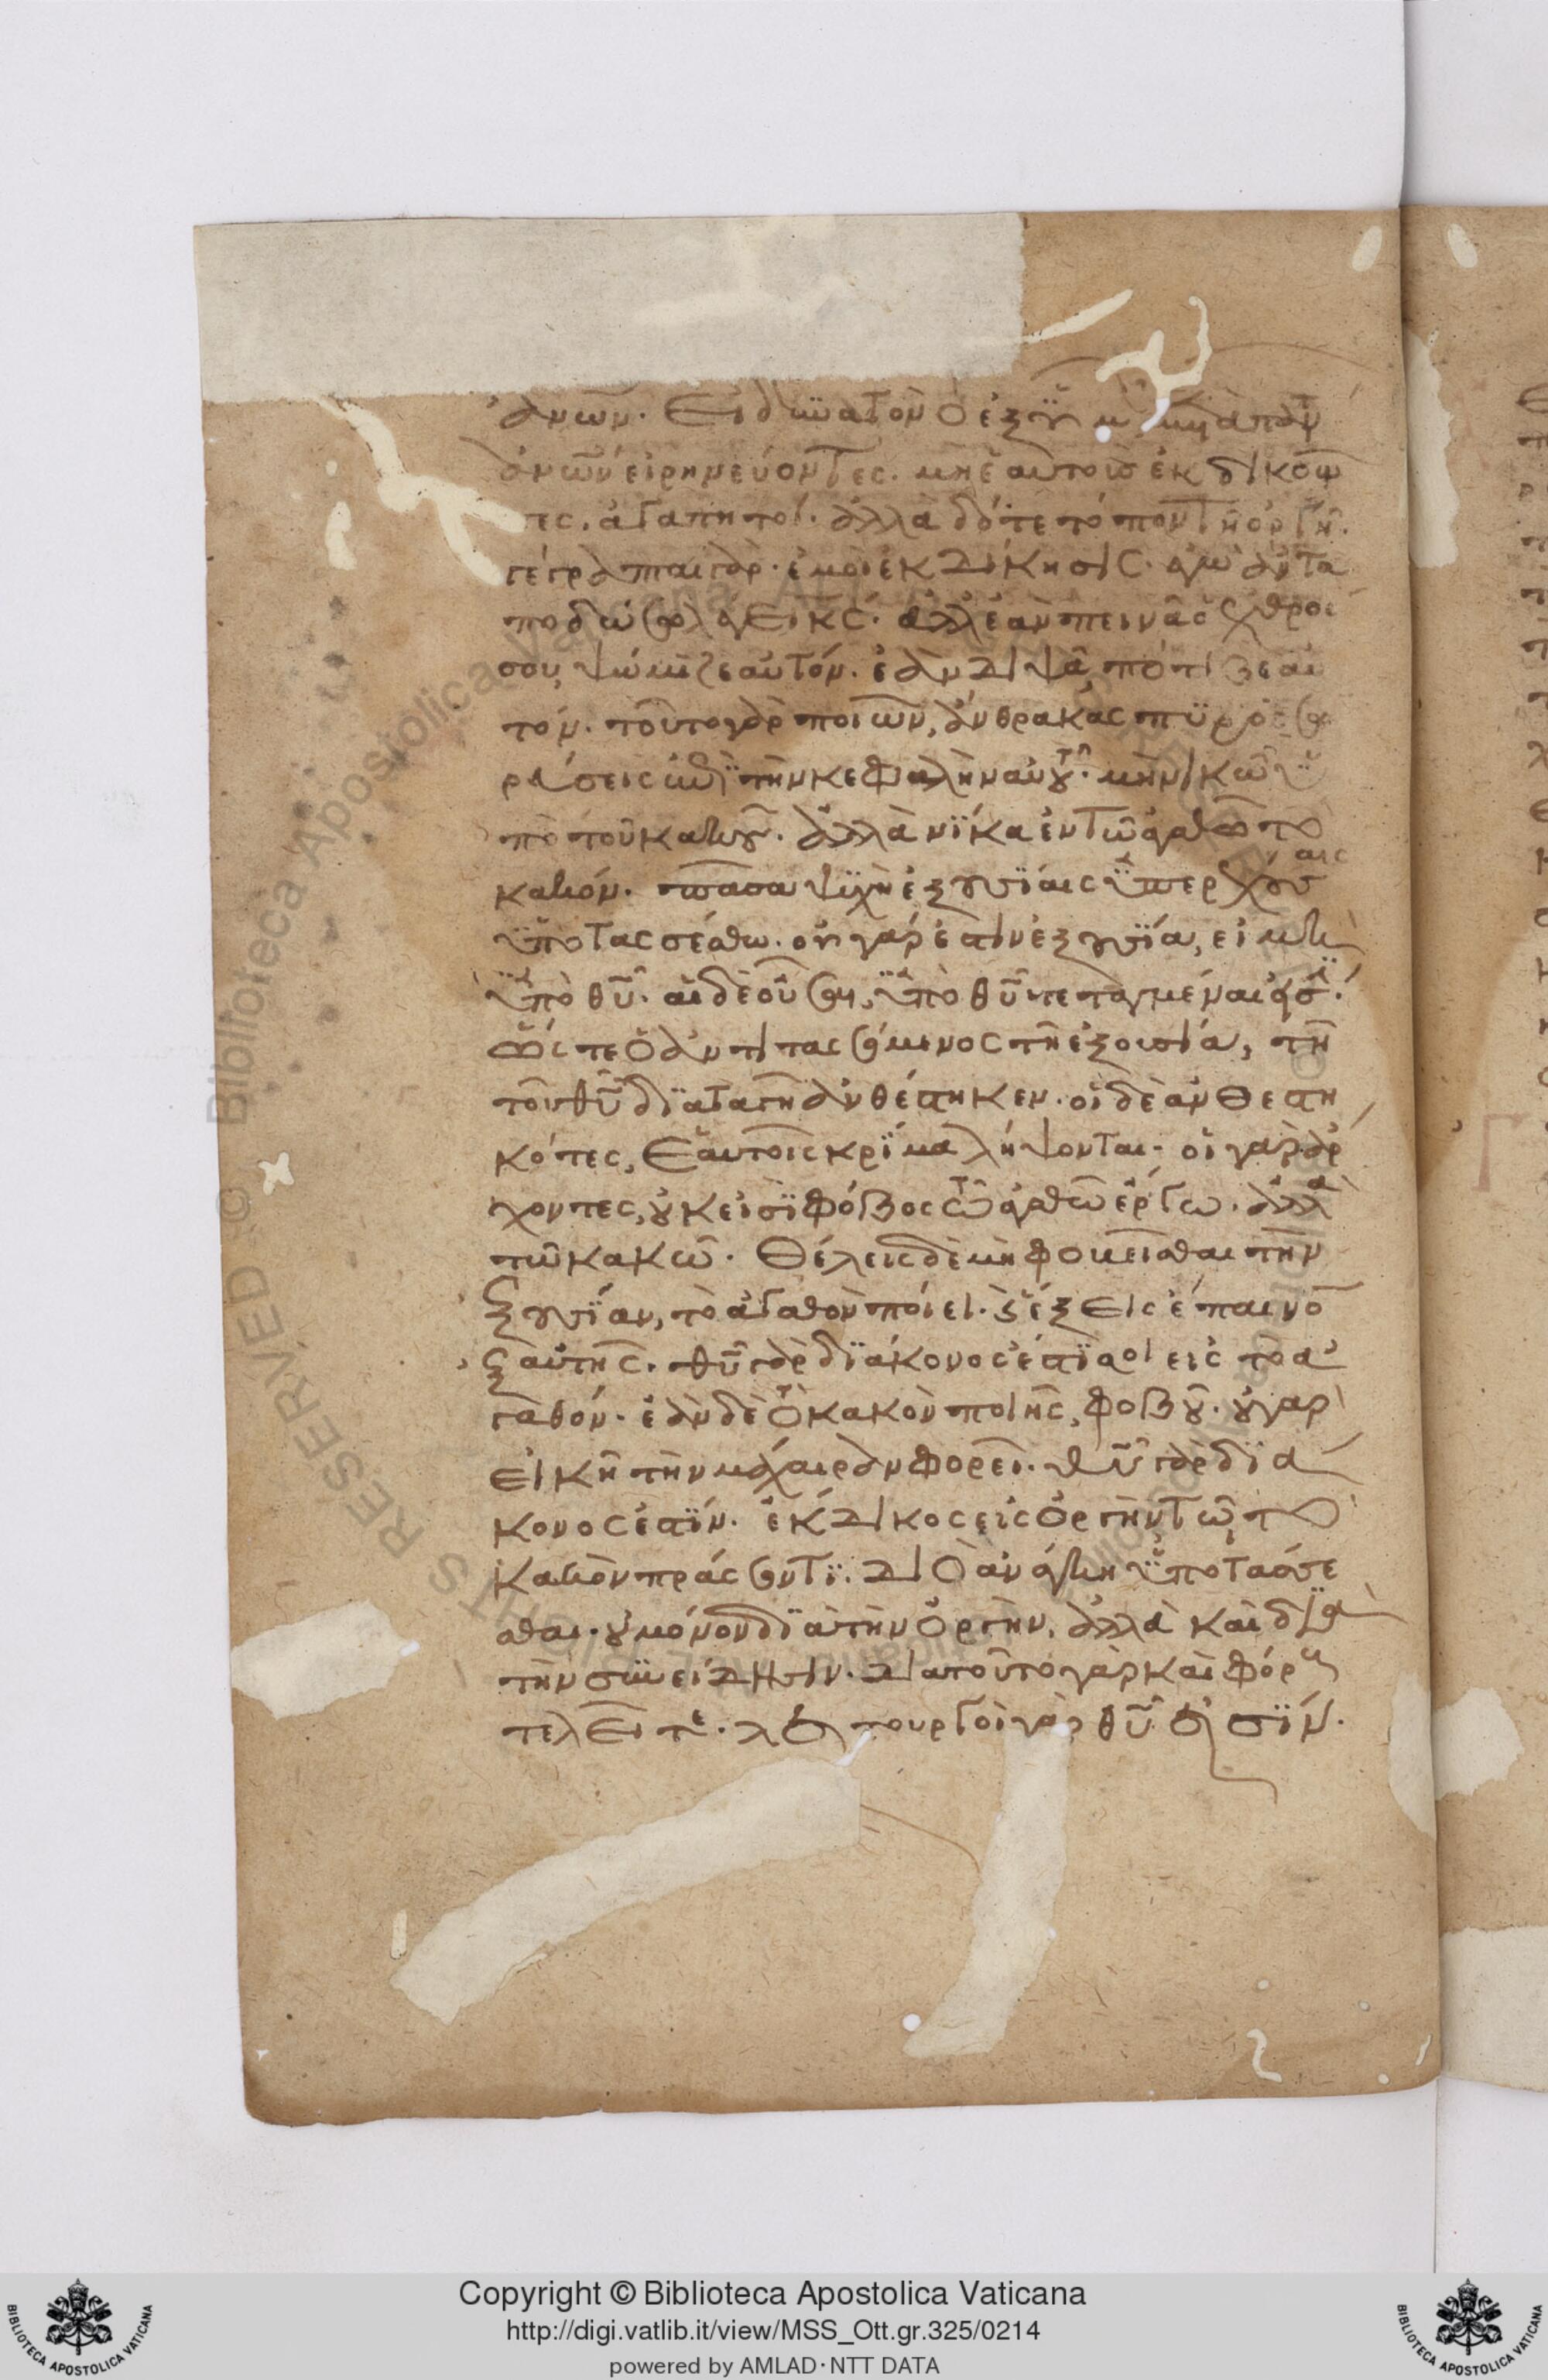 ἀνων. Εἰ δυνατὸν ὁ ἐξ ὑμῶν μετὰ πάντ
ἀνων εἰρηνεύοντες. μὴ ἑαυτοὺσ ἐκδικοῦν
τες, ἀγαπητοί. ἀλλὰ δότε τόπον τῆ ὀργῆ.
γέγραπται γὰρ. ἐμοὶ ἐκδίκησις. ἐγὼ ἀντα
ποδώσω λέγει κς. ἀλλ' ἐὰν πεινᾶ ὁ ἐχθρος
σου, ψώμιζε αὐτόν. ἐὰν διψᾶ, πότιζε αὐ
τόν. τοῦτο γὰρ ποιῶν, ἄνθρακας πυρὸς σω
ρεύσεις ἐπὶ τὴν κεφαλὴν αὐτοῦ. μὴ νικῶ ὑ
πὸ τοῦ κακοῦ. ἀλλὰ νίκα ἐν τῶ ἀγαθῶ τὸ
κακόν. πᾶσα ψυχὴ ἐξουσίαις ὑπερεχούσαις
ὑποτασσέσθω. οὐ γάρ ἐστιν ἐξουσία, εἰ μὴ
ὑπὸ θυ. αἱ δὲ οὖσαι, ὑπὸ θυ τεταγμέναι εἰσί.
ὥστε ὁ ἀντιτασσόμενος τῆ ἐξουσία, τῆ
τοῦ θυ διαταγῆ ἀνθέστηκεν. οἱ δὲ ἀνθεστη
κότες, ἑαυτοῖς κρίμα λήψονται. οἱ γὰρ ἄρ
χοντες, οὐκ εἰσὶ φόβος τῶ ἀγαθῶ ἔργω. ἀλλὰ
τῶ κακῶ. Θέλεις δὲ μὴ φοβεῖσθαι τὴν ἐ
ξουσίαν, τὸ ἀγαθὸν ποίει. καὶ ἕξεις ἔπαινον
ἐξ αὐτῆς. θυ γὰρ διάκονος ἐστί σοι εἰς τὸ ἀ
γαθόν. ἐὰν δὲ τὸ κακὸν ποιῆς, φοβοῦ. οὐ γαρ
εἰκῆ τὴν μάχαιραν φορεῖ. θυ γὰρ διά
κονος ἐστίν. ἔκδικος εἰς ὀργὴν τῶ τὸ
κακὸν πράσσοντι. διὸ ἀνάγκη ὑποτάσσε
σθαι. οὐ μόνον διὰ τὴν ὀργὴν, ἀλλὰ καὶ διὰ
τὴν συνείδησιν. διὰ τοῦτο γὰρ καὶ φόρους
τελεῖτε. λειτουργοὶ γὰρ θυ εἰσίν.
Copyright © Biblioteca Apostolica Vaticana
http://digi.vatlib.it/view/MSS_Ott.gr.325/0214
powered by AMLAD·NTT DATA